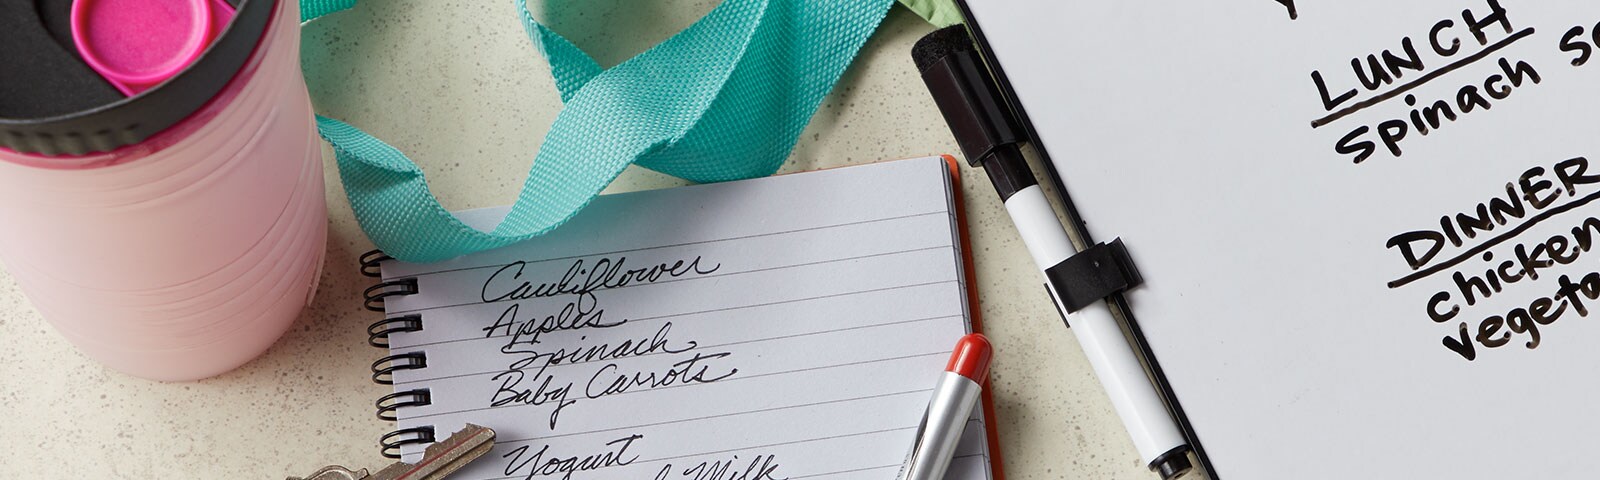 Cauliflower
Apples
Spinach
Baby Carrots
Yogurt
Milk
LUNCH
spinach
DINNER
chicken